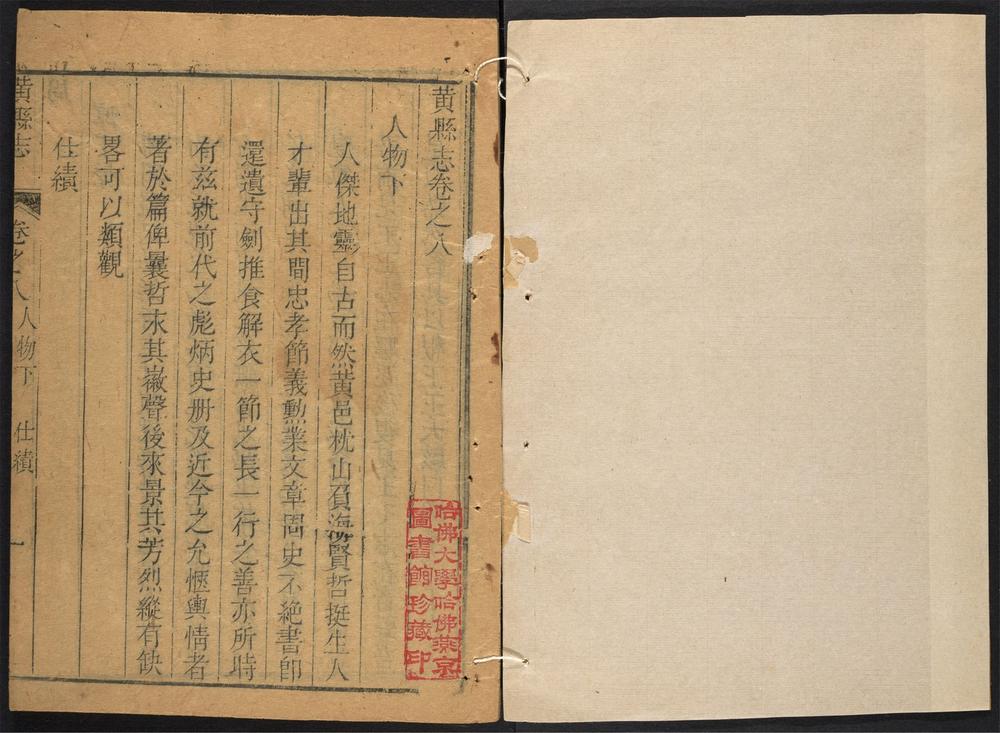 黃縣志卷之八
人物下
人傑地靈自古而然黃邑枕山負海賢哲挺生人
才輩出其間忠孝節義勲業文章周史不絕書卽
還遺守劍推食解衣一節之長一行之善亦所時
有茲就前代之彪炳史册及近今之允愜輿情者
著於篇俾曩哲永其徽聲後來景其芳烈縱有缺
畧可以類觀
仕績
黃縣志
卷之八人物下
仕績
一
哈佛大學哈佛燕京
圖書館珍藏印